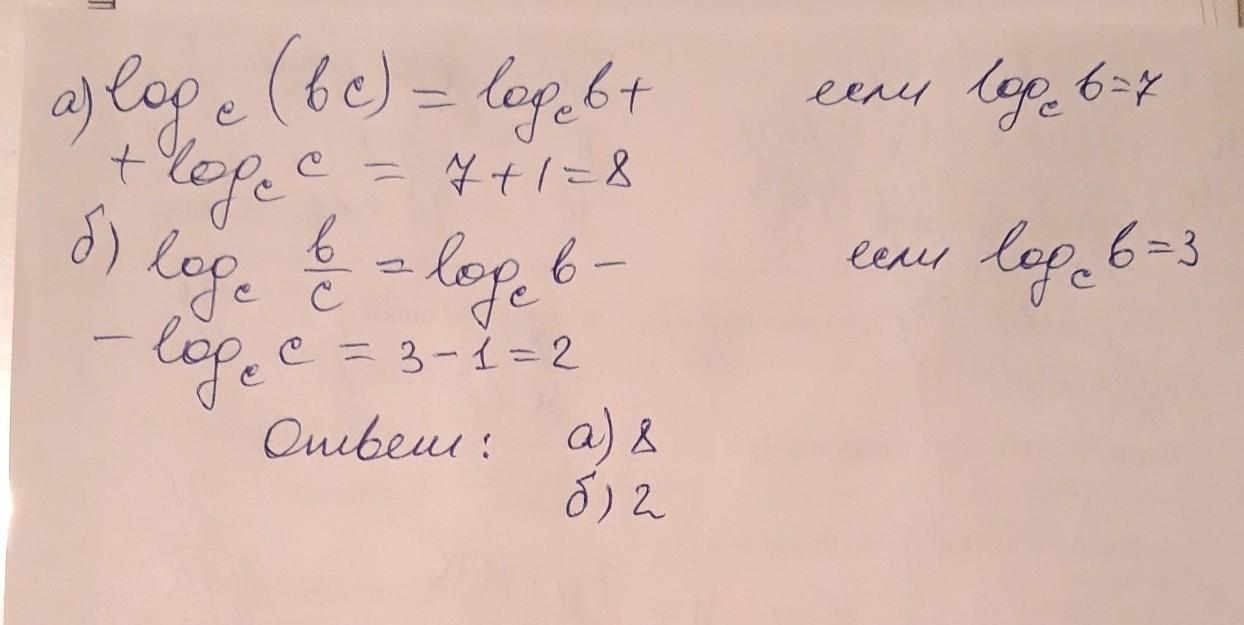 а) log_c (bc) = log_c b + если log_c b = 7
+ log_c c = 7 + 1 = 8
б) log_c b/c = log_c b − если log_c b = 3
− log_c c = 3 − 1 = 2
Ответ: а) 8
б) 2